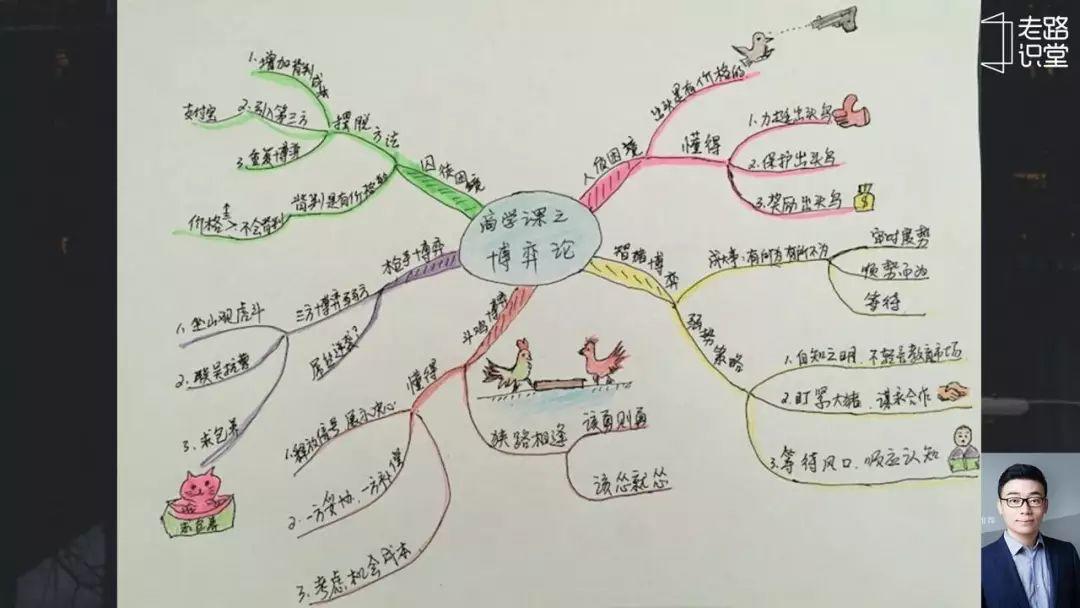 老路
识堂
商学课之
博弈论
人质困境
出头是有价格的
懂得
1.力挺出头鸟
2.保护出头鸟
3.奖励出头鸟
智猪博弈
成大事:有所为有所不为
审时度势
顺势而为
等待
弱势策略
1.自知之明、不轻易教育市场
2.盯紧大猪、谋求合作
3.等待风口、顺应认知
斗鸡博弈
狭路相逢
该勇则勇
该怂就怂
懂得
1.释放信号 展示决心
2.一方妥协、一方补偿
3.考虑机会成本
枪手博弈
三方博弈弱方
1.坐山观虎斗
2.联吴抗曹
3.求包养
屌丝逆袭?
求包养
囚徒困境
摆脱方法
1.增加背叛成本
2.引入第三方
支付宝
3.重复博弈
背叛是有价格的
价格
不会背叛